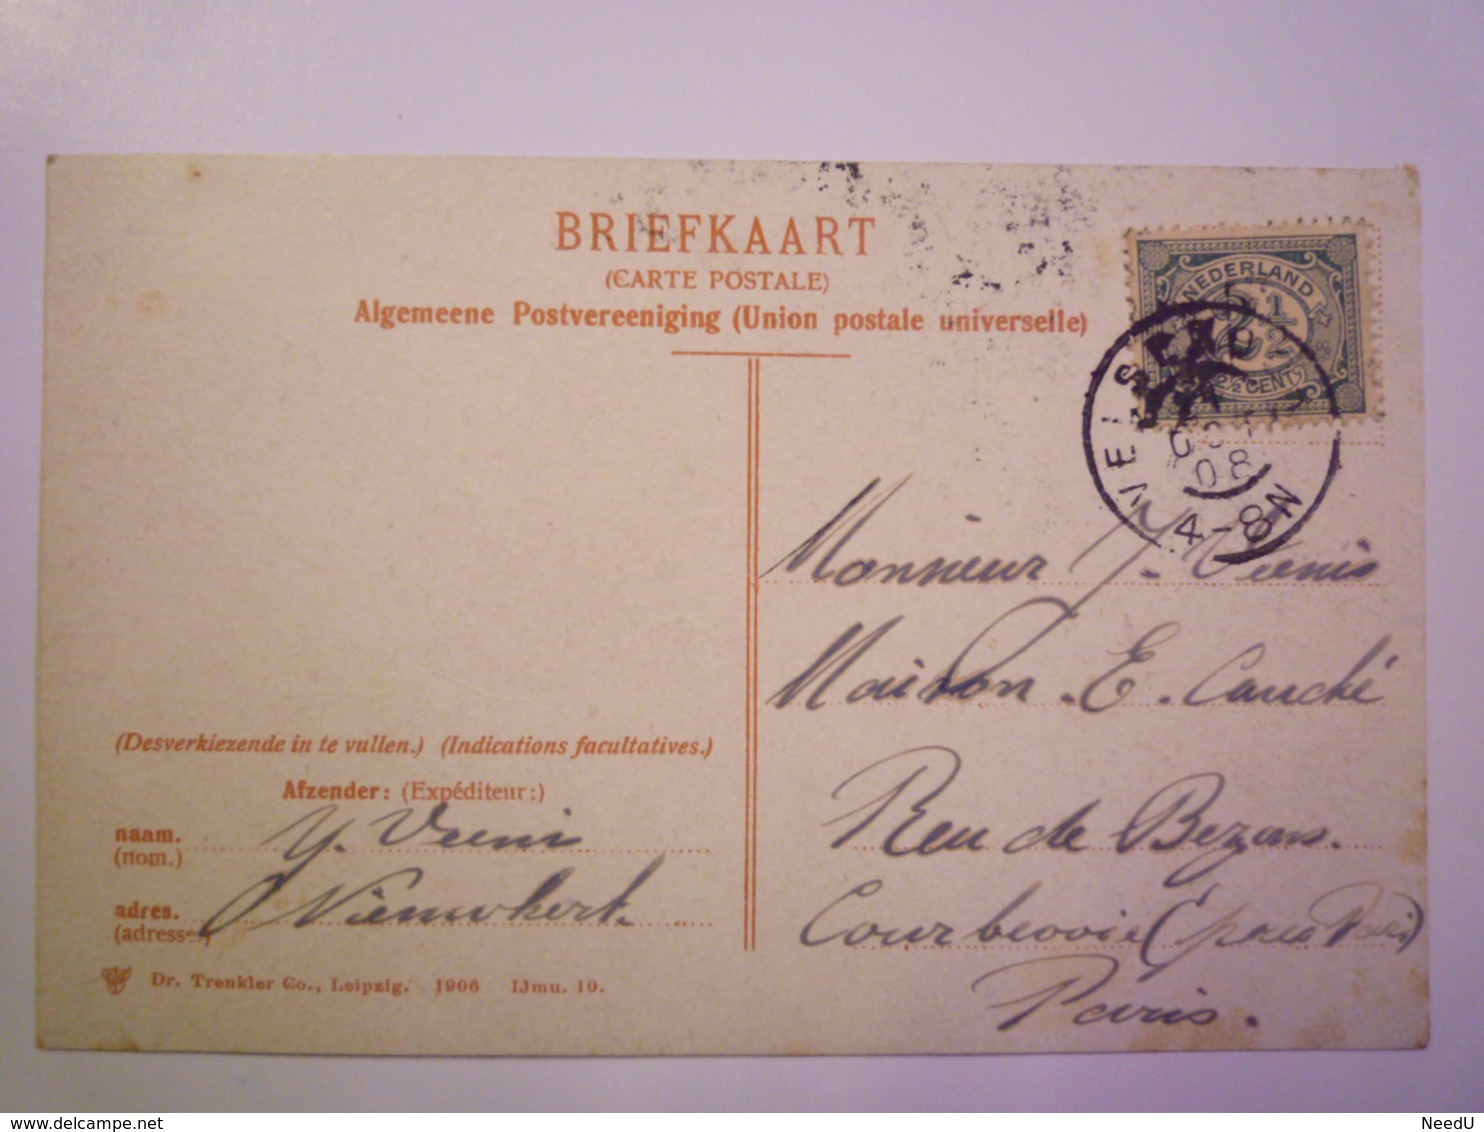 BRIEFKAART
(CARTE POSTALE)
Algemeene Postvereeniging (Union postale universelle)
NEDERLAND
2½
2½ CENT
08
4-8N
Monsieur
Maison. E. Cauché
Rue de Bezons.
Courbevoie (près Paris)
Paris.
(Desverkiezende in te vullen.) (Indications facultatives.)
Afzender: (Expéditeur:)
naam.
(nom.)
adres.
(adresse)
Dr. Trenkler Co., Leipzig. 1906 IJmu. 10.
NeedU
www.delcampe.net